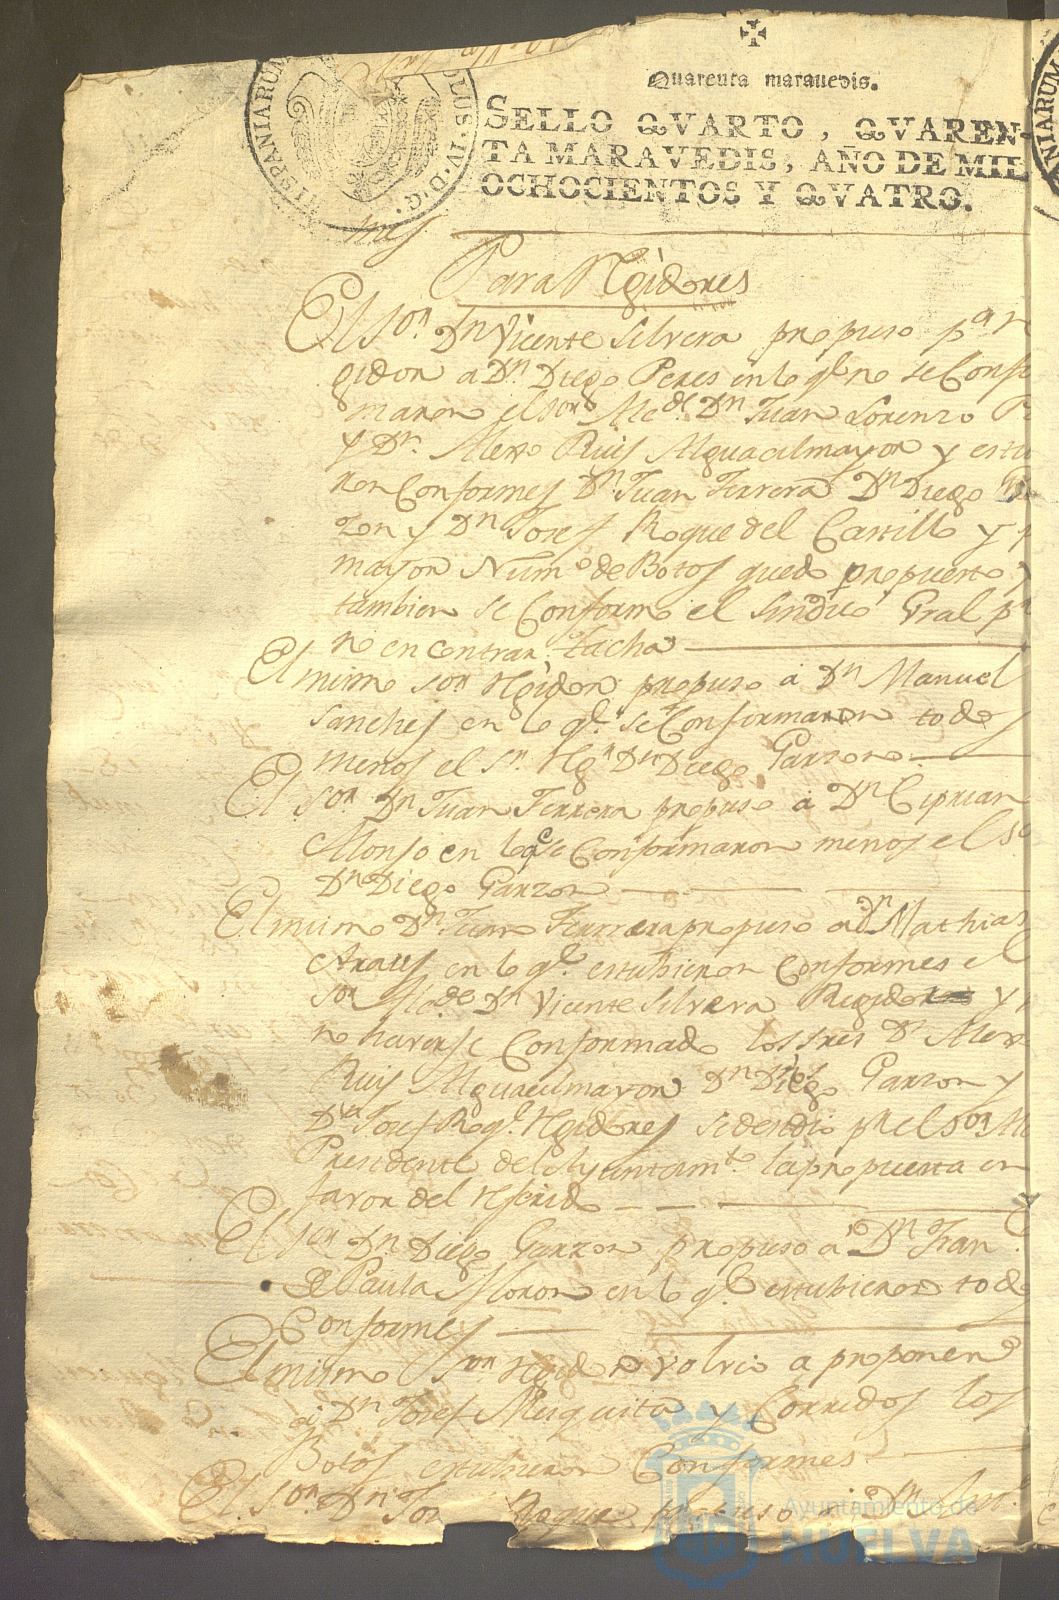 Quarenta maravedis.
SELLO QVARTO, QVAREN-
TA MARAVEDIS, AÑO DE MIL
OCHOCIENTOS Y QVATRO.
HISPANIARUM
OLUS·IV·D·G·
NIARUM
Para Rgidores
El Sor. Dn Vicente Silvera propuso pa. r
gidor a Dn. Diego Peres en lo ql. no se Confo
maron el Sor. Alcde. Dn Juan Lorenzo
y Dn. Alexo Ruis Alguacilmayor y estu
ron Conformes Dn. Juan Ferrera Dn Diego
zon y Dn Josef Roque del Castillo y
mayor Numo de Botos quedo propuesto y
tambien se Conformo el Sindico Gral pr
no encontrar tacha
El mismo Sor Rgidor propuso a Dn Manuel
Sanches en lo ql. se Conformaron todos
menos el Sr. Rgr Dn Diego Garzon
El Sor Dn Juan Ferrera propuso a Dn Ciprian
Alonso en lo qe se Conformaron menos el So
Dn Diego Garzon
El mismo Dn Juan Ferrera propuso a Dn Mathias
Araus en lo ql. estubieron Conformes el
Sor Alcde Dn Vicente Silvera Regidor y
no haverse Conformado los Sres Dn Alex
Ruis Alguacilmayor Dn Diego Garzon y
Dn Josef Roqe. Rgidores se dendio pr el Sor Al
Presidente del Ayuntamto. la propuesta en
favor del referido
El Sor Dn. Diego Garzon propuso a Dn Franco.
de Paula Moron en lo ql estubieron todos
Conformes
El mismo Sor Rgidor volvio a proponer
a Dn Josef Musquita y Corridos los
Botos estubieron Conformes
El Sor Dn Jos Roque propuso a Dn
Ayuntamiento de
HUELVA